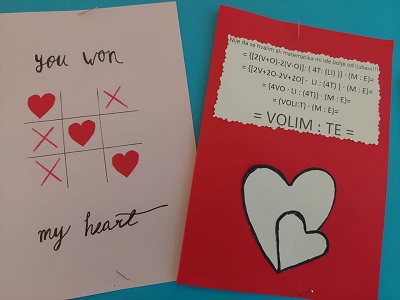 you won
my heart
Nije da se hvalim ali matematika mi ide bolje od ljubavi!!!
= {[2(V+O)-2(V-O)]: ( 4T: (LI) )} · (M : E)=
= {[2V+2O-2V+2O] · LI : (4T) } · (M : E)=
= {4VO · LI : (4T)} · (M : E)=
= (VOLI:T) · (M : E)=
= VOLIM : TE =